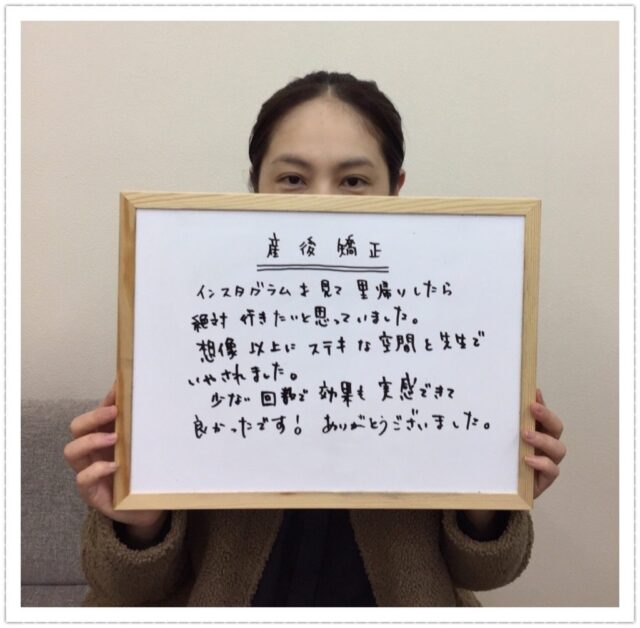 産後矯正
インスタグラムを見て里帰りしたら
絶対行きたいと思っていました。
想像以上にステキな空間と先生で
いやされました。
少ない回数で効果も実感できて
良かったです！ありがとうございました。